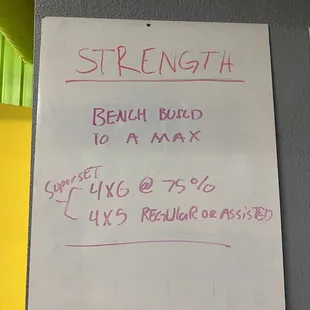 STRENGTH
BENCH BUILD
TO A MAX
SUPERSET
4X6 @ 75%
4X5 REGULAR OR ASSISTED